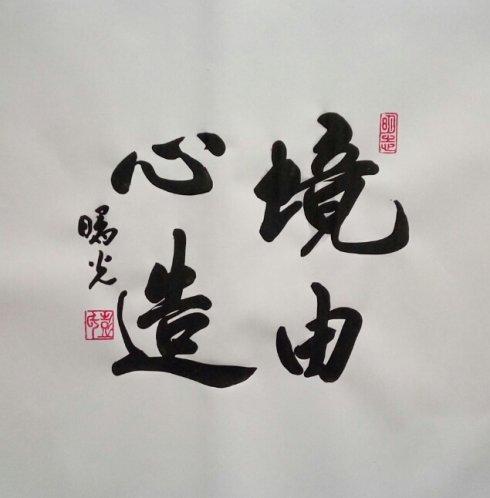 境由
心造
曙光